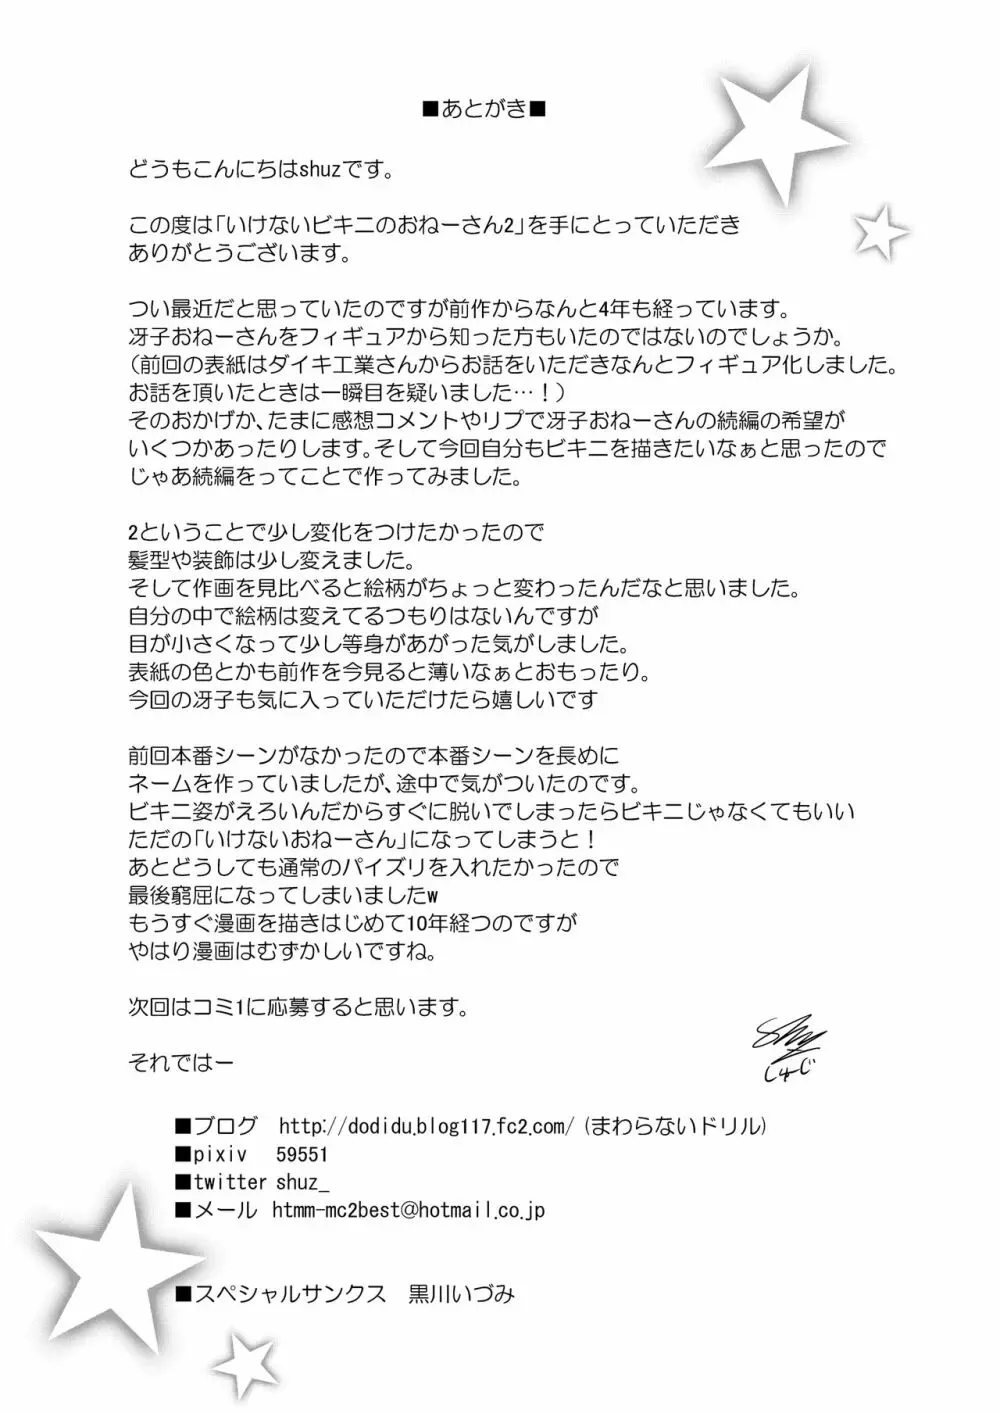 ■あとがき■
どうもこんにちはshuzです。
この度は「いけないビキニのおねーさん2」を手にとっていただき
ありがとうございます。
つい最近だと思っていたのですが前作からなんと4年も経っています。
冴子おねーさんをフィギュアから知った方もいたのではないのでしょうか。
(前回の表紙はダイキ工業さんからお話をいただきなんとフィギュア化しました。
お話を頂いたときは一瞬目を疑いました…！)
そのおかげか、たまに感想コメントやリプで冴子おねーさんの続編の希望が
いくつかあったりします。そして今回自分もビキニを描きたいなぁと思ったので
じゃあ続編をってことで作ってみました。
2ということで少し変化をつけたかったので
髪型や装飾は少し変えました。
そして作画を見比べると絵柄がちょっと変わったんだなと思いました。
自分の中で絵柄は変えてるつもりはないんですが
目が小さくなって少し等身があがった気がしました。
表紙の色とかも前作を今見ると薄いなぁとおもったり。
今回の冴子も気に入っていただけたら嬉しいです
前回本番シーンがなかったので本番シーンを長めに
ネームを作っていましたが、途中で気がついたのです。
ビキニ姿がえろいんだからすぐに脱いでしまったらビキニじゃなくてもいい
ただの「いけないおねーさん」になってしまうと！
あとどうしても通常のパイズリを入れたかったので
最後窮屈になってしまいましたw
もうすぐ漫画を描きはじめて10年経つのですが
やはり漫画はむずかしいですね。
次回はコミ1に応募すると思います。
それではー
shuz
しゅーじ
■ブログ http://dodidu.blog117.fc2.com/ (まわらないドリル)
■pixiv 59551
■twitter shuz_
■メール htmm-mc2best@hotmail.co.jp
■スペシャルサンクス 黒川いづみ